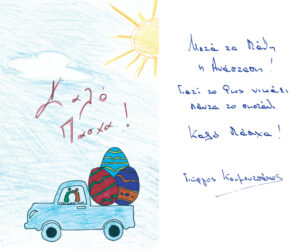 Καλό
Πάσχα!
Μετά τα Πάθη
η Ανάσταση!
Γιατί το Φως νικάει
πάντα το σκοτάδι.
Καλό Πάσχα!
Γιώργος Κουμουτσάκος